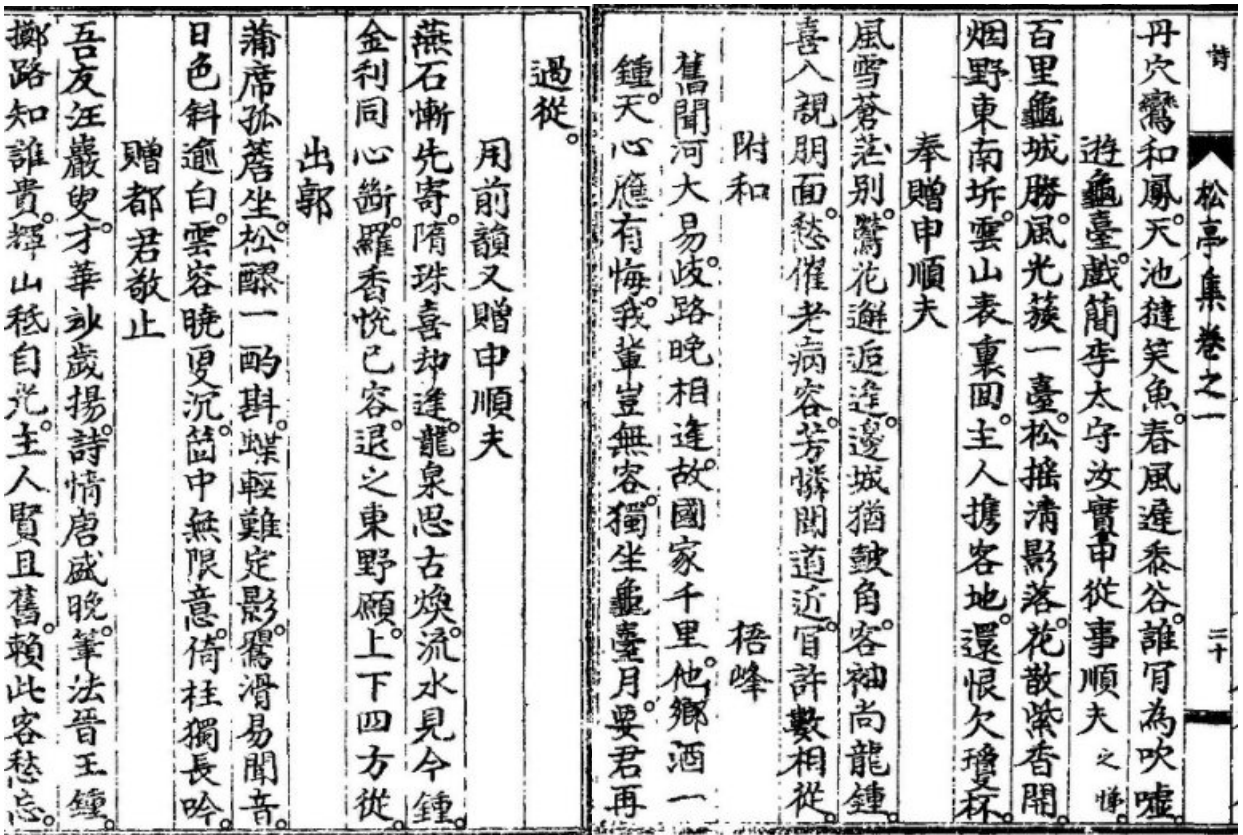 詩
松亭集卷之一
二十
丹穴鸞和鳳天池㺚笑魚春風遲黍谷誰肯為吹噓
遊龜臺戲簡李太守汝實申從事順夫之悌
百里龜城勝風光蔟一臺松搖清影落花散紫香開
烟野東南坼雲山表裏回主人携客地還恨欠瓊杯
奉贈申順夫
風雪蒼茫別鶯花邂逅逢邊城猶鼓角客袖尚龍鍾
喜入親朋面愁催老病容芳憐聞道近肯許數相從
附和 梧峰
舊聞河大易歧路晚相逢故國家千里他鄉酒一
鍾天心應有悔我輩豈無客獨坐龜臺月要君再
過從
用前韻又贈申順夫
燕石慚先寄隋珠喜却逢龍泉思古煥流水見今鍾
金利同心斷羅香悅己容退之東野願上下四方從
出郭
蒲席孤簷坐松醪一酌斟蝶輕難定影鶯滑易聞音
日色斜逾白雲容曉更沉箇中無限意倚柱獨長吟
贈都君敬止
吾友汪巖叟才華玅歲揚詩情唐盛晚筆法晉王鍾
擲路知誰貴輝山秖自光主人賢且舊賴此客愁忘